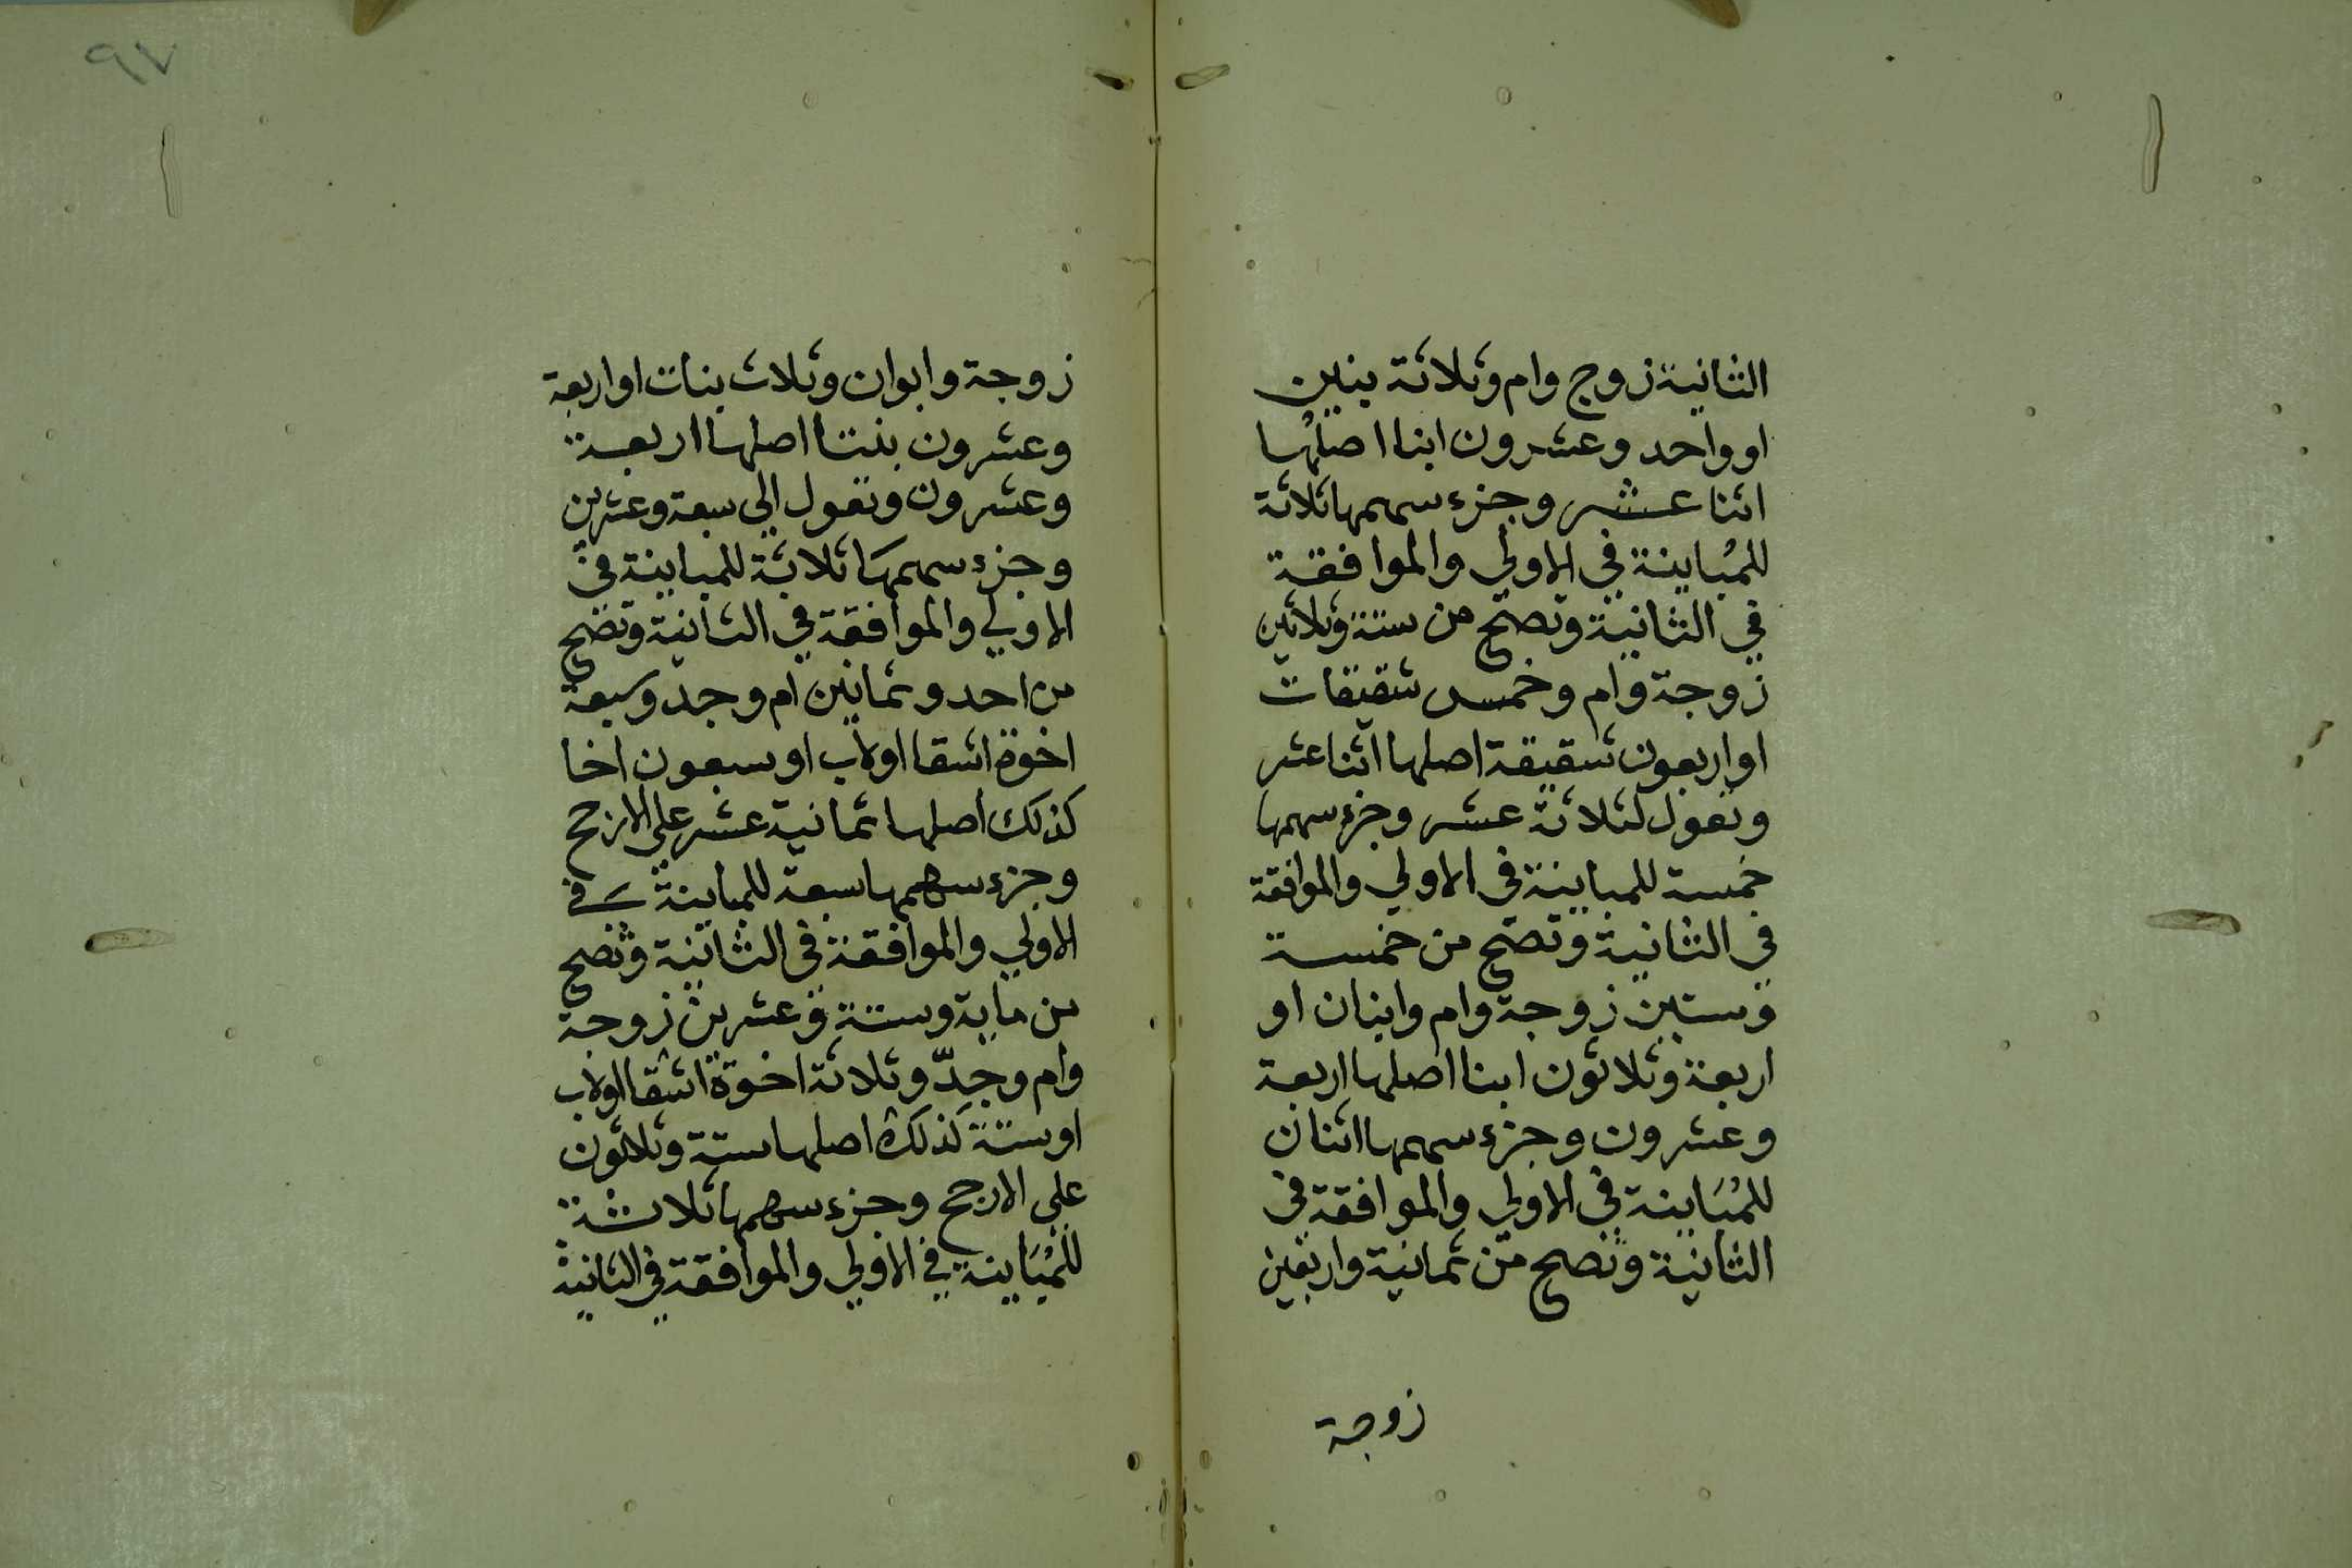 الثانية زوج وام وثلاثة بنين
او واحد وعشرون ابنا اصلها
اثنا عشر وجزء سهمها ثلاثة
للمُباينة في الاولي والموافقة
في الثانية وتصح من ستة وثلاثين
زوجة وام وخمس شقيقات
او اربعون شقيقة اصلها اثنا عشر
وتعول لثلاثة عشر وجزء سهمها
خمسة للمباينة في الاولي والموافقة
في الثانية وتصح من خمسة
وستين زوجة وام وابنان او
اربعة وثلاثون ابنا اصلها اربعة
وعشرون وجزء سهمها اثنان
للمُبَاينة في الاولي والموافقة في
الثانية وتصح من ثمانية واربعين
زوجة
٩٧
زوجة وابوان وثلاث بنات او اربعة
وعشرون بنتا اصلها اربعة
وعشرون وتعول الي سبعة وعشرين
وجزء سهمهَا ثلاثة للمباينة في
الاولي والموافقة في الثانية وتصح
من احد وثمانين ام وجد وسبعة
اخوة اشقا او لاب او سبعون اخا
كذلك اصلها ثمانية عشر علي الارجح
وجزء سهمها سبعة للمباينة في
الاولي والموافقة في الثانية وتصح
من ماية وستة وعشرين زوجة
وام وجدّ وثلاثة اخوة اشقا او لاب
او ستة كذلك اصلها ستة وثلاثون
علي الارجح وجزء سهمها ثلاثة
للمُبَاينة في الاولي والموافقة في الثانية